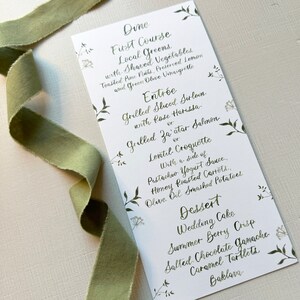 Dine
First Course
Local Greens
with Shaved Vegetables,
Toasted Pine Nuts, Preserved Lemon
and Green Olive Vinaigrette
Entrée
Grilled Sliced Sirloin
with Rose Harissa
or
Grilled Za'atar Salmon
or
Lentil Croquette
With a side of
Pistachio Yogurt Sauce,
Honey Roasted Carrots,
Olive Oil Smashed Potatoes
Dessert
Wedding Cake
Summer Berry Crisp
Salted Chocolate Ganache
Caramel Tartlets,
Baklava